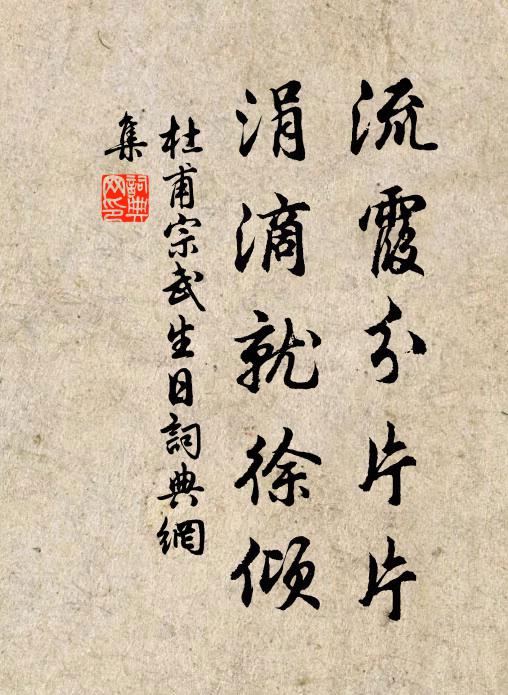 流霞分片片
涓滴就徐傾
杜甫宗武生日詞典網
集
詞典网印